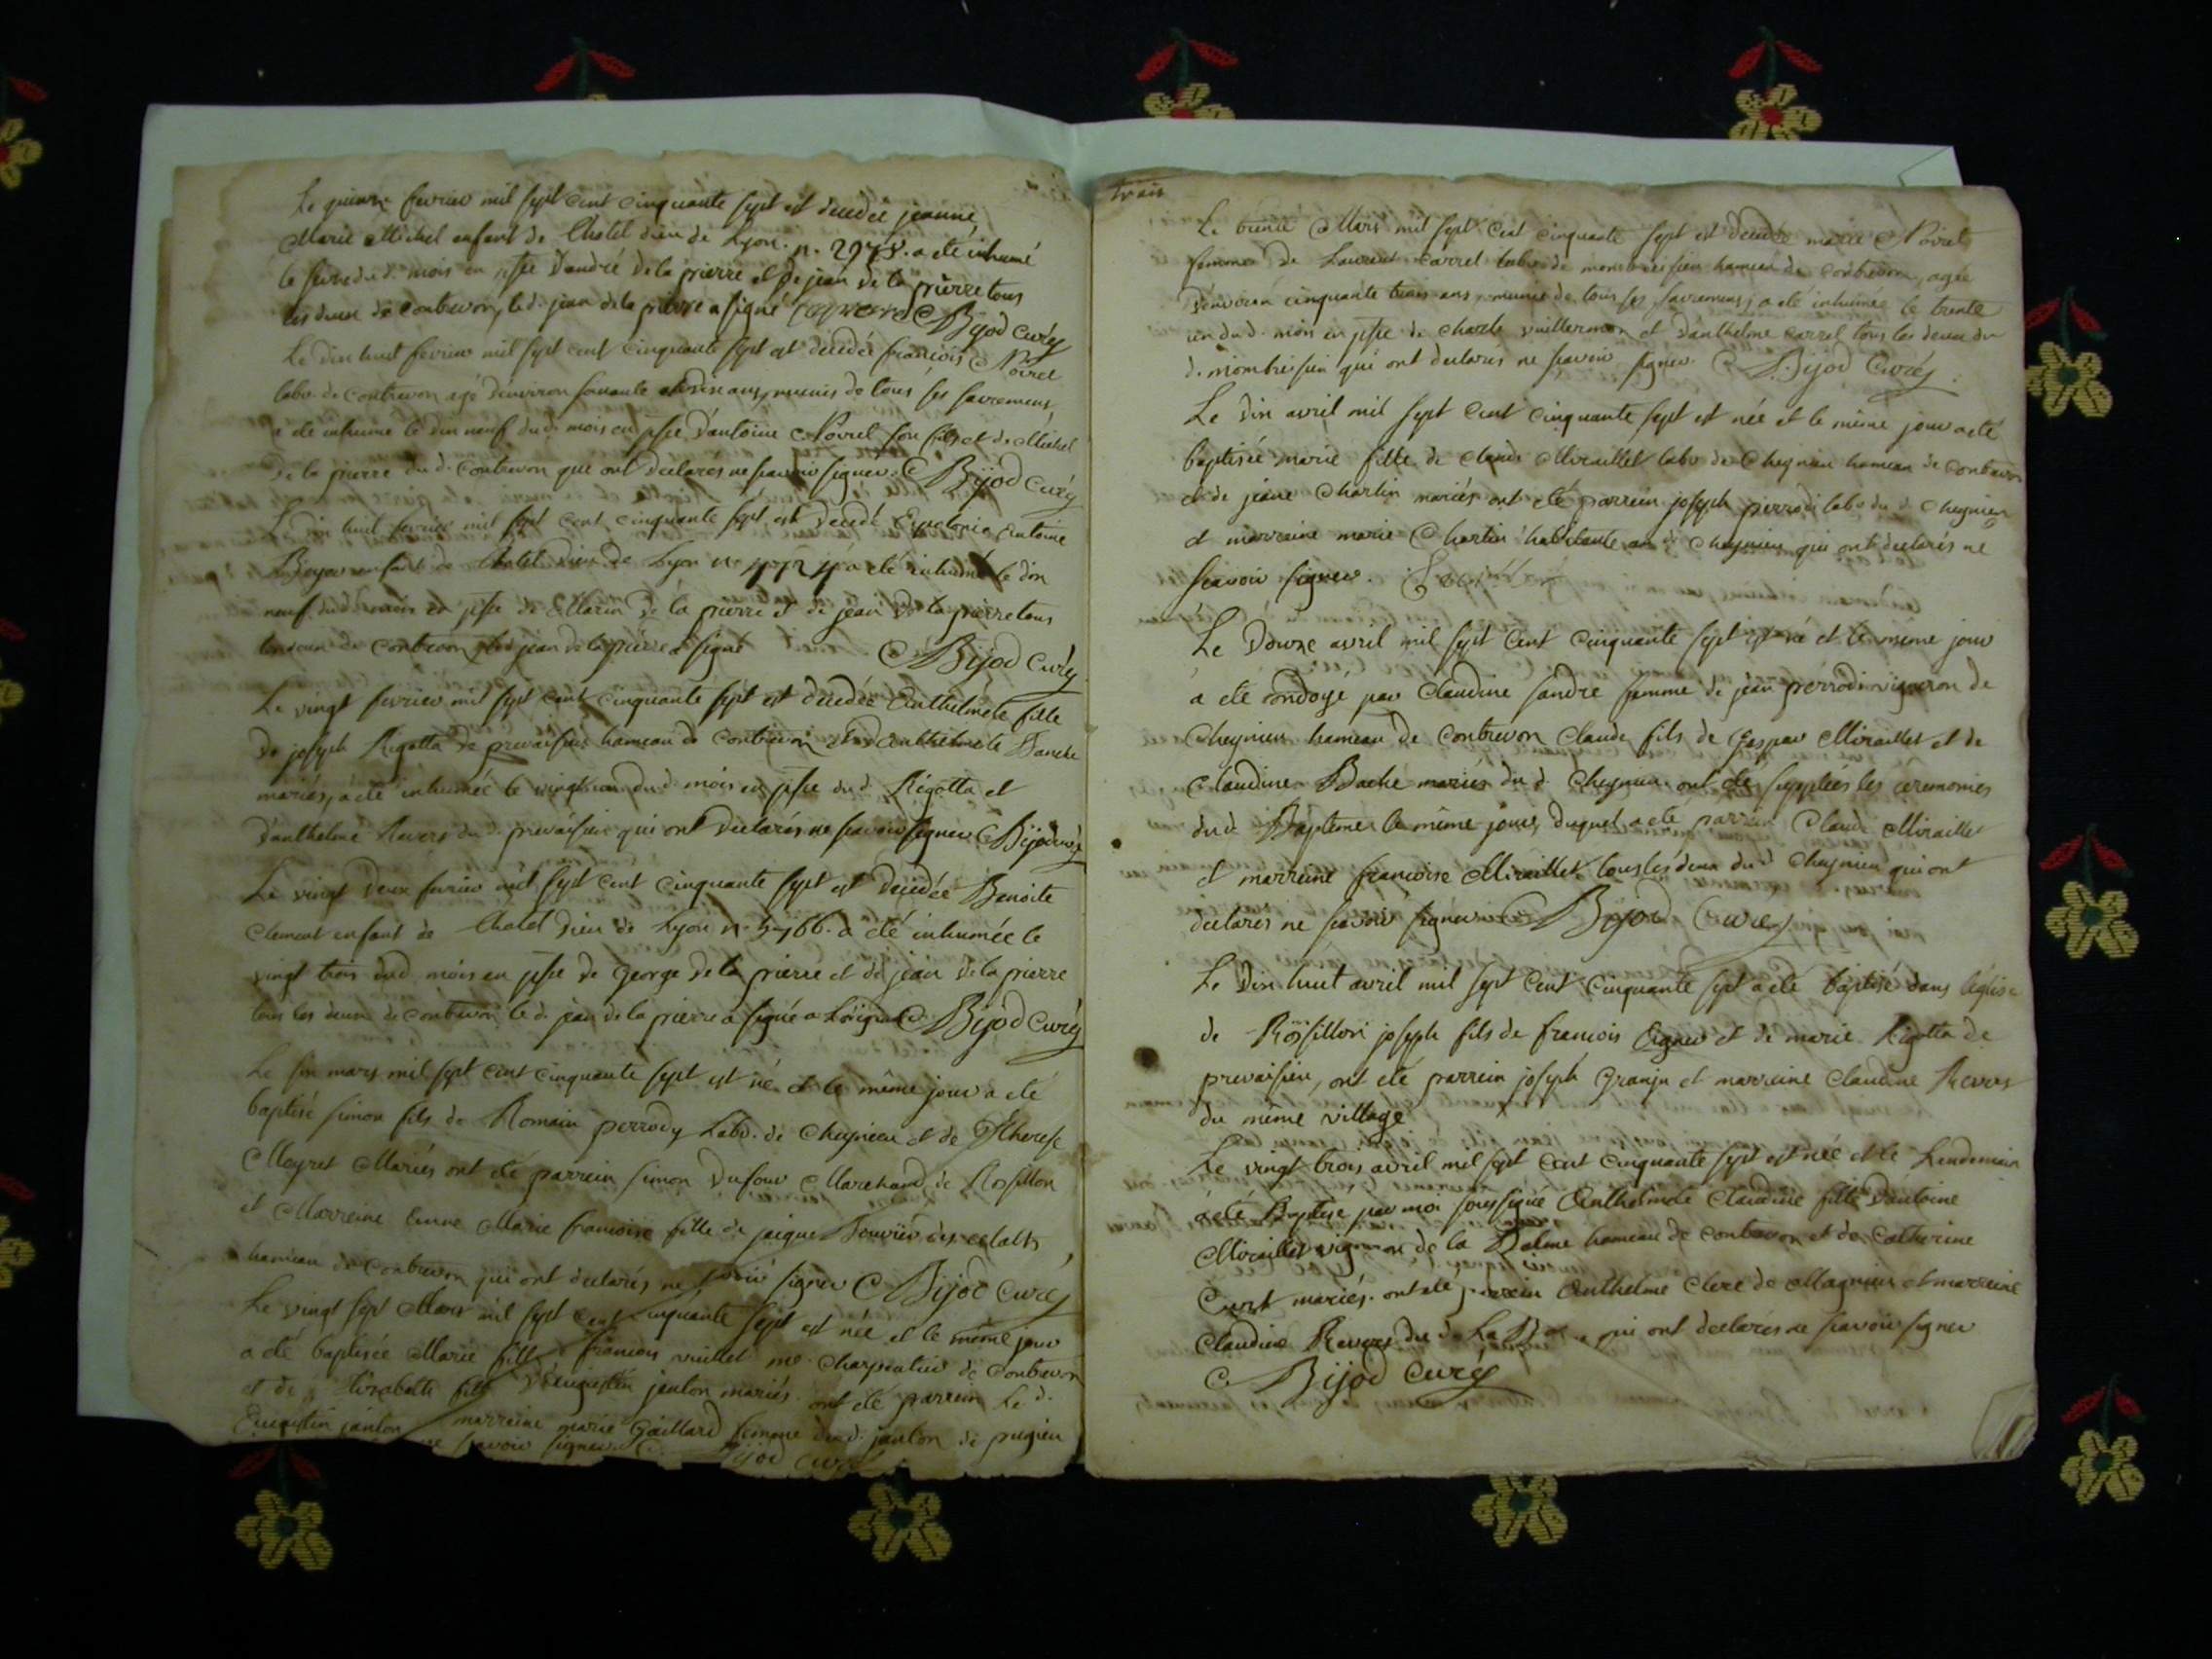 Le quinze fevrier mil sept cent cinquante sept est decedée jeanne
Marie Michel enfant de lhotel dieu de Lyon. n. 2978. a été inhumé
le seize dud. mois en psce d'andré de la pierre et de jean de la pierre tous
les deux de contrevon, le d. jean de la pierre a signé Bijod curé
Le dix huit fevrier mil sept cent cinquante sept est décédé francois Poirel
labo. de contrevon agé d'environ soixante ans, munis de tous ses sacremens,
a été inhumé le dix neuf dud. mois en psce d'antoine Poirel son fils et de Michel
de la pierre dud. contrevon que ont déclarés ne scavoir signer. Bijod curé
Le dix huit fevrier mil sept cent cinquante sept est decedé antoine
enfant de lhotel dieu de Lyon n. a été inhumé le dix
neuf dud. mois en psce de Marin de la pierre et de jean de la pierre tous
les deux de contrevon, led. jean de la pierre a signé Bijod curé
Le vingt fevrier mil sept cent cinquante sept est décédée Anthelmete fille
de joseph Rigotta de prevaisieu hameau de contrevon et d'anthelmete
mariés, a été inhumée le vingt un dud. mois en psce dud. Rigotta et
d'anthelme Revers dud. prevaisieu qui ont declarés ne scavoir signer Bijod curé
Le vingt deux fevrier mil sept cent cinquante sept est decedée Benoite
Clement enfant de lhotel dieu de Lyon n. 5766. a été inhumée le
vingt trois dud. mois en psce de George de la pierre et de jean de la pierre
tous les deux de contrevon, le d. jean de la pierre a signé a loriginal Bijod curé
Le six mars mil sept cent cinquante sept est né et le même jour a été
baptisé simon fils de Romain perrody Labo. de Cheynieu et de Therese
Meyret Mariés ont été parrein simon Dufour Marchand de Rossillon
et Marreine Marie francoise fille de jacque
hameau de contrevon qui ont declarés ne scavoir signer Bijod curé
Le vingt sept Mars mil sept cent cinquante sept est née et le même jour
a été baptisée Marie fille francois vuillet me. Charpentier de Contrevon
et de Elizabeth fille janton mariés. ont été parrein Le d.
janton marreine marie Gaillard femme dud. janton de pugieu
scavoir signer. Bijod curé
trois
Le trente Mars mil sept cent cinquante sept est decedée marie Poirel
femme de Laurent Carrel labo. de hameau de contrevon, agée
d'environ cinquante trois ans, munie de tous ses sacremens, a été inhumée le trente
un dud. mois en psce de Charle vuillermoz et d'anthelme Carrel tous les deux du
d. qui ont declarés ne scavoir signer Bijod Curé
Le dix avril mil sept cent cinquante sept est née et le même jour a été
baptisée marie fille de Claude Miraillet labo. de Cheynieu hameau de contrevon
et de jeane Chartin mariés ont été parrein joseph perrodi labo du d. Cheynieu
et marreine marie Chartin habitante au d. Cheynieu qui ont declarés ne
scavoir signer.
Le douze avril mil sept cent cinquante sept est né et le même jour
a été ondoyé par Claudine sandre femme de jean perrodi vigneron de
Cheynieu hameau de contrevon Claude fils de Gaspar Miraillet et de
Claudine Bache mariés du d. Cheynieu. ont été supplées les ceremonies
dud. Baptême le même jour, duquel a été parrein Claude Miraillet
et marreine francoise Miraillet tous les deux du d. Cheynieu qui ont
declarés ne scavoir signer Bijod Curé
Le dix huit avril mil sept cent cinquante sept a été baptisé dans léglise
de Rossillon joseph fils de francois et de marie Rigotta de
prevaisieu, ont été parrein joseph Granju et marreine Claudine Revers
du même village
Le vingt trois avril mil sept cent cinquante sept est née et le Lendemain
a été Baptisé par moi soussigné Anthelmete Claudine fille d'antoine
Miraillet vigneron de la Balme hameau de contrevon et de Catherine
mariés. ont été parrein Anthelme Clerc de Magnieu et marreine
Claudine Revers du d. La qui ont declarés ne scavoir signer
Bijod curé